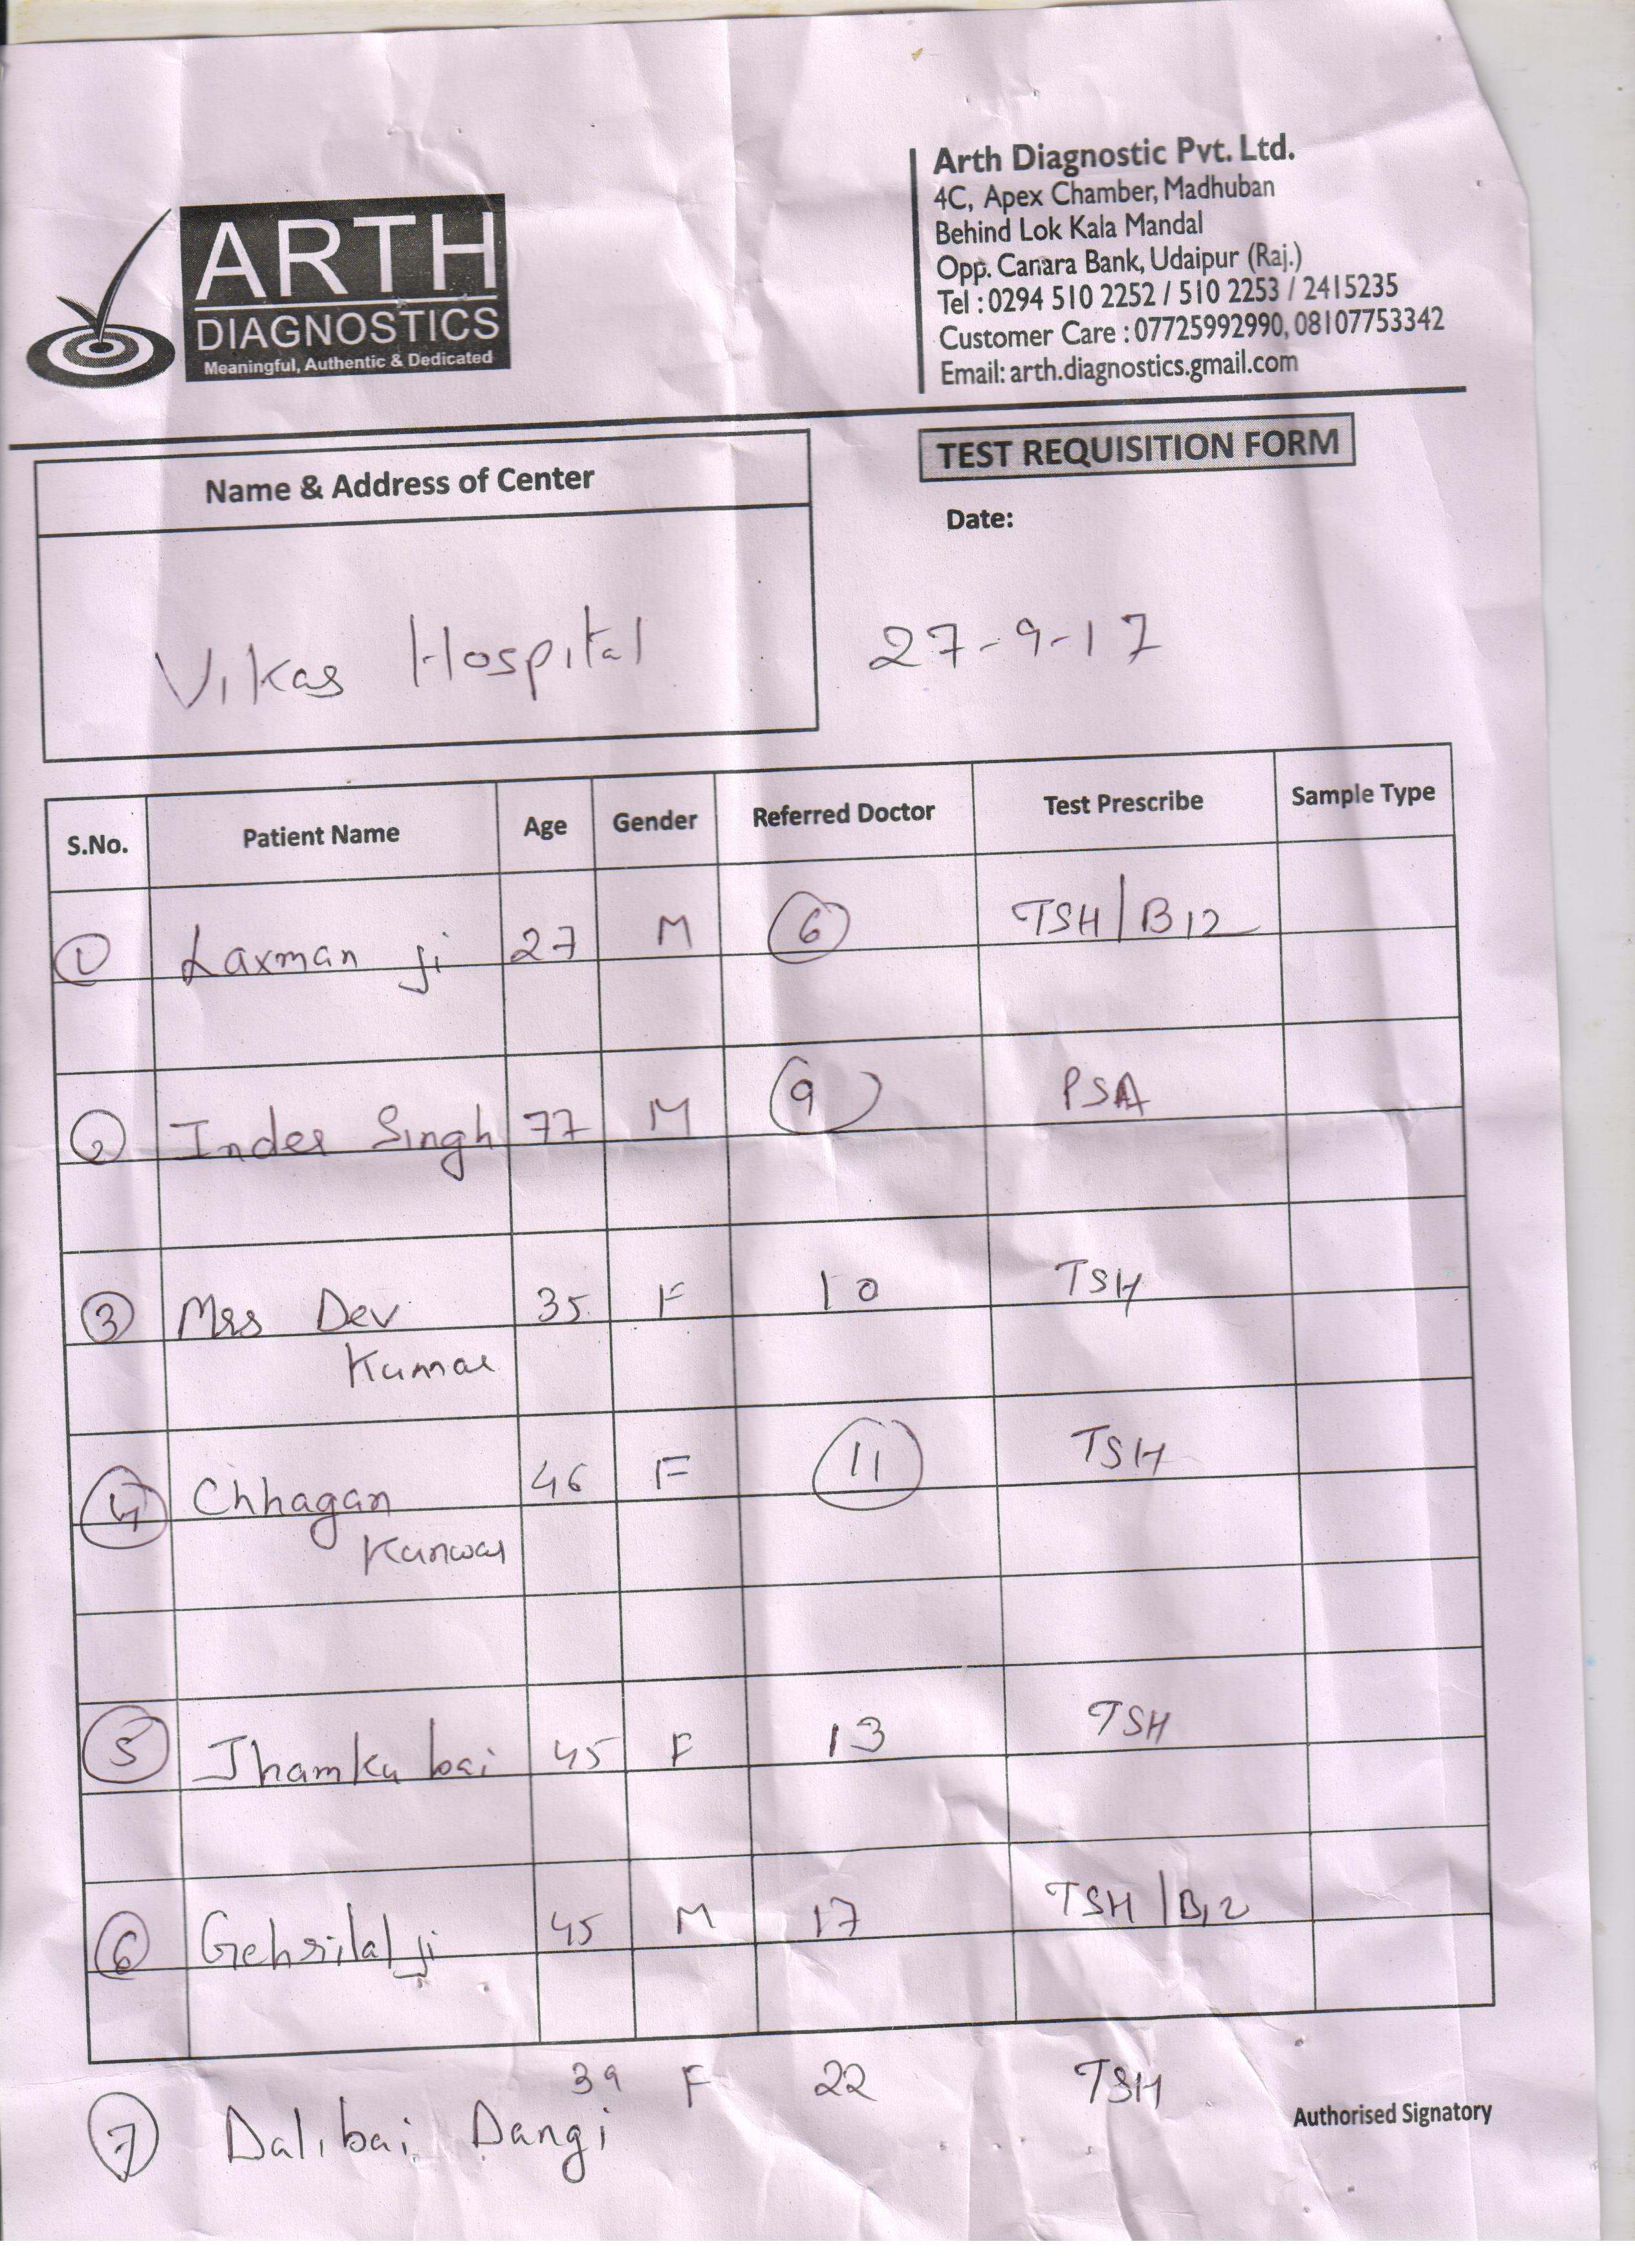 ARTH
DIAGNOSTICS
Meaningful, Authentic & Dedicated
Arth Diagnostic Pvt. Ltd.
4C, Apex Chamber, Madhuban
Behind Lok Kala Mandal
Opp. Canara Bank, Udaipur (Raj.)
Tel : 0294 510 2252 / 510 2253 / 2415235
Customer Care : 07725992990, 08107753342
Email: arth.diagnostics.gmail.com
Name & Address of Center
Vikas Hospital
TEST REQUISITION FORM
Date:
27-9-17
S.No. Patient Name Age Gender Referred Doctor Test Prescribe Sample Type
1 Laxman ji 27 M 6 TSH/B12
2 Inder Singh 77 M 9 PSA
3 Mrs Dev 35 F 10 TSH
Kumar
4 Chhagan 46 F 11 TSH
Kanwar
5 Jhamku bai 45 F 13 TSH
6 Gehrilal ji 45 M 17 TSH/B12
7 Dalibai Dangi 39 F 22 TSH
Authorised Signatory